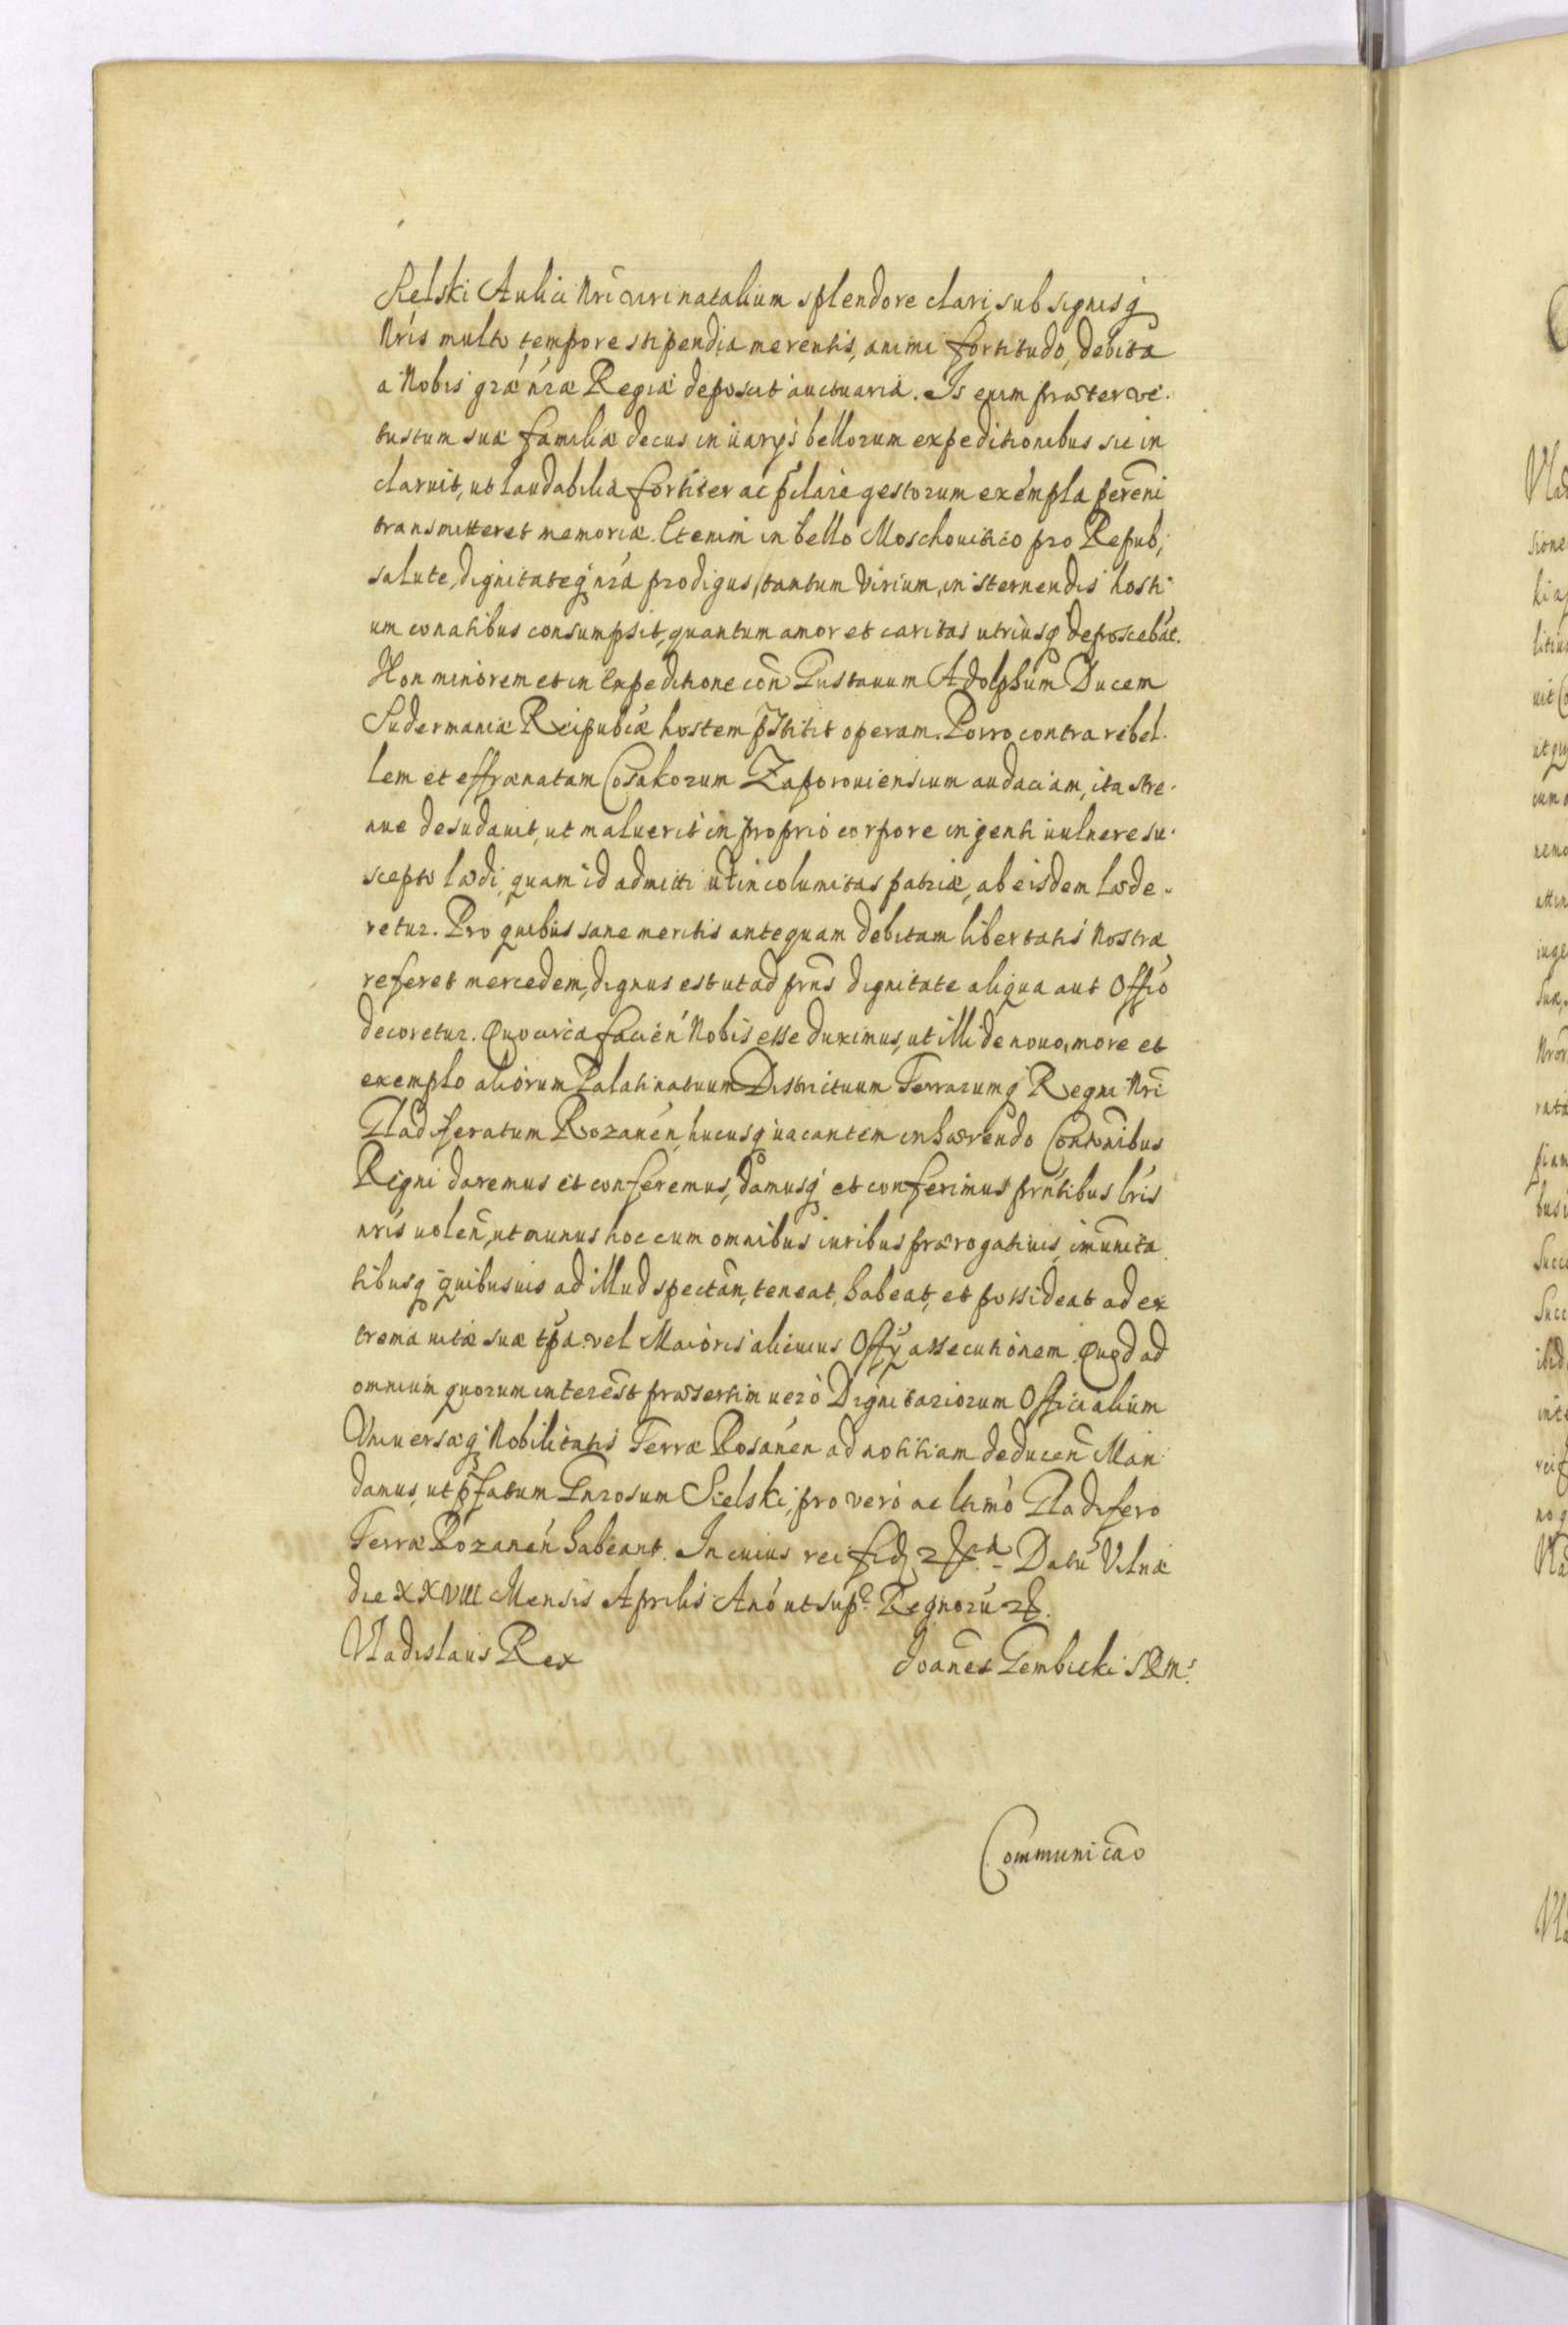 Sielski Aulici Nri viri natalium splendore clari, sub signisq
Nris multo tempore stipendia merentis, animi fortitudo, debita
a Nobis grae nrae Regiae deposcit auctuaria. Is enim praeter ve-
tustum suae familiae decus in varijs bellorum expeditionibus sic in
claruit, ut laudabilia fortiter ac pclare gestorum exempla perenni
transmitteret memoriae. Etenim in bello Moschovitico pro Repub,
salute, dignitateq nra prodigus, tantum virium, in sternendis hosti-
um conatibus consumpsit, quantum amor et caritas utriusq deposcebat.
Non minorem et in Expeditione con Gustavum Adolphum Ducem
Sudermaniae Reipubcae hostem pstitit operam. Porro contra rebel-
lem et effraenatam Cosakorum Zaporoviensium audaciam, ita stre-
nue desudavit, ut maluerit in proprio corpore ingenti vulnere su-
scepto laedi, quam id admitti ut incolumitas patriae, ab eisdem laede-
retur. Pro quibus sane meritis antequam debitam libertatis Nostrae
referet mercedem, dignus est ut ad prns dignitate aliqua aut Offio
decoretur. Quocirca facien Nobis esse duximus, ut illi de novo, more et
exemplo aliorum Palatinatuum Districtuum Terrarumq Regni Nri
Gladiferatum Rozanen, hucusq vacantem inhaerendo Contonibus
Regni daremus et conferemus, damusq et conferimus prntibus lris
nris volen, ut munus hoc cum omnibus iuribus praerogativis, imunita
tibusq quibusvis ad illud spectan, teneat, habeat, et possideat ad ex
trema vitae suae tpa vel Maioris alicuius Offy assecutionem. Quod ad
omnium quorum interest praesertim vero Dignitariorum Officialium
Universaeq Nobilitatis Terrae Rosanen ad notitiam deducen Man
damus, ut pfatum Gnrosum Sielski, pro vero ac ltimo Gladifero
Terrae Rozanen habeant. In cuius rei fid Datu Vilnae
die XXVIII Mensis Aprilis Ano ut sup Regnoru
Vladislaus Rex
Joanes Gembicki SRM
Communicao